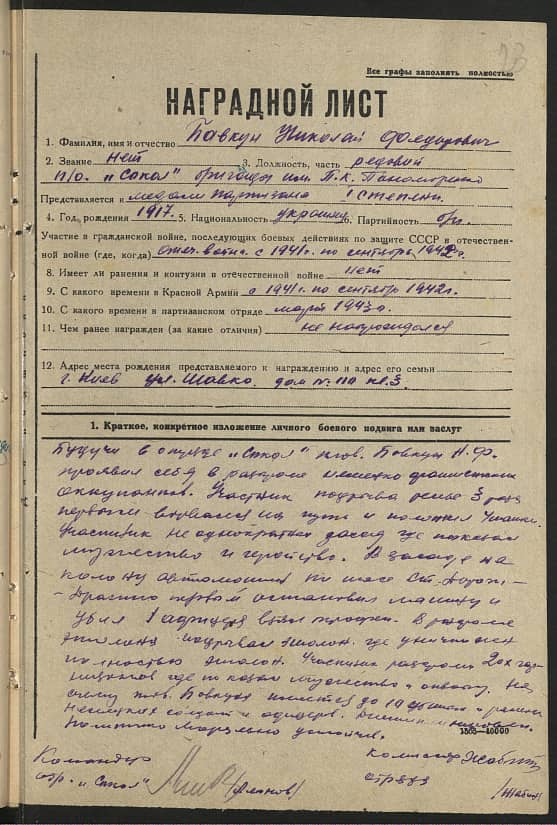 23
Все графы заполнять полностью
НАГРАДНОЙ ЛИСТ
1. Фамилия, имя и отчество Бавкун Николай Федорович
2. Звание нет 3. Должность, часть рядовой
п/о. „Сокол" бригады им. П. К. Пономаренко
Представляется к медали партизана I степени.
4. Год рождения 1917г. 5. Национальность украинец 6. Партийность б/п.
Участие в гражданской войне, последующих боевых действиях по защите СССР в отечествен-
ной войне (где, когда) отеч. война с 1941г. по сентябрь 1942г.
8. Имеет ли ранения и контузии в отечественной войне нет
9. С какого времени в Красной Армии с 1941г. по сентябрь 1942г.
10. С какого времени в партизанском отряде март 1943г.
11. Чем ранее награжден (за какие отличия) не награждался
12. Адрес места рождения представляемого к награждению и адрес его семьи
г. Киев ул. дом № кв. 3
1. Краткое, конкретное изложение личного боевого подвига или заслуг
Будучи в отряде „Сокол" тов. Бавкун Н. Ф.
проявил себя в разгроме немецко фашистских
оккупантов. Участник подрыва 3 раза
первым на пути и
Участник неоднократных засад где показал
мужество и геройство. В засаде на
колону автомашин по шосе Ст-Дороги-
первым остановил машину и
убил 1 офицера взял трофеи. В разгроме
эшелона подрывал эшелон где уничтожен
полностью эшелон. Участник разгрома 2ох гар-
низонов где показал мужество и отвагу. На
счету тов. Бавкуна имеется до 10 убитых и раненых
немецких солдат и офицеров.
Политико Морально устойчив.
1563—10000
Командир
отр. „Сокол"
комиссар
отряда